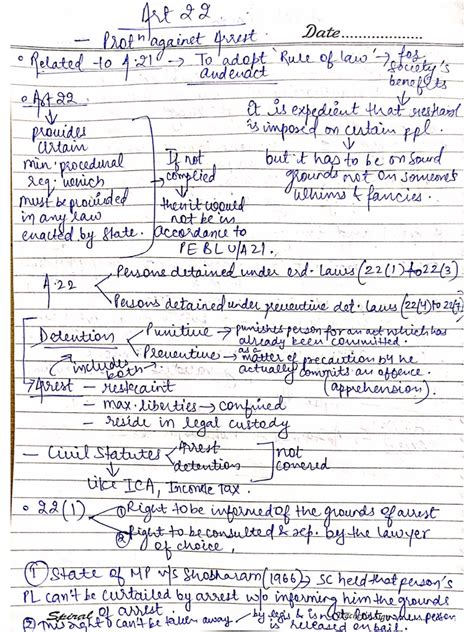 Art 22
- Protⁿ against Arrest.
Date
• Related to A.21 → To adopt 'Rule of law' → for society's benefits
and enact
• Art 22
↓
provides
certain
min. procedural
req. which
must be provided
in any law
enacted by State.
If not
complied
↓
then it would
not be in
accordance to
PEBL U/A 21.
It is expedient that restraint
is imposed on certain ppl.
↓
but it has to be on sound
grounds not on someone's
whims & fancies.
A.22
Persons detained under ord. laws (22(1) to 22(3)
Persons detained under preventive det. laws (22(4) to 22(7)
Detention
Punitive → punishes person for an act which has
already been committed.
Preventive → as a matter of precaution b4 he
actually commits an offence.
(apprehension).
includes
both
→ Arrest - restraint
- max. liberties → confined
- reside in legal custody
- Civil Statutes
Arrest
detention
not
covered
↓
like ICA, Income Tax.
• 22(1)
① Right to be informed of the grounds of arrest
② Right to be consulted & rep. by the lawyer
of choice.
① State of MP v/s Shobharam (1966) → SC held that person's
PL can't be curtailed by arrest w/o informing him the grounds
of arrest.
Spiral
② This right can't be taken away by legis & is not lost when person
is released on bail.